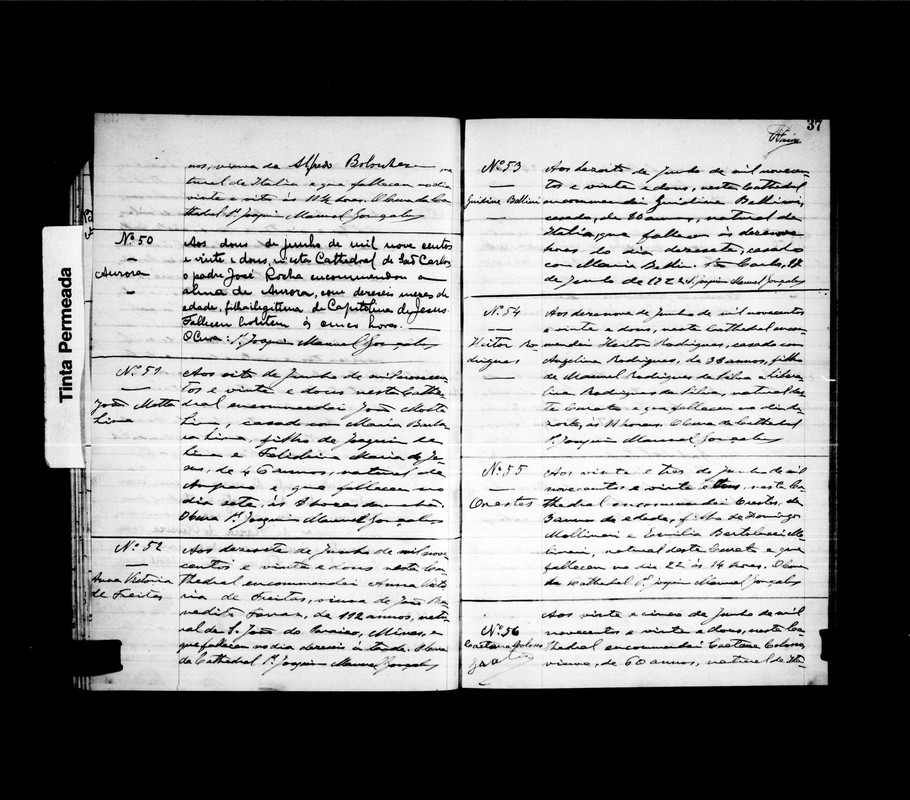 Tinta Permeada
nos, viuva de Alfredo
tural de Italia e que falleceu no dia
vinte e oito ás 11½ horas. O Cura da Ca-
thedral Pe Joaquim Manuel Gonçalves
Nº 50
Aurora
Aos dous de junho de mil nove centos
e vinte e dous, nesta Cathedral de São Carlos
o padre José Rocha encommendou a
alma de Aurora, com dezeseis mezes de
edade, filha illegitima de Capitolina de Jesus.
Falleceu hontem ás cinco horas.
O Cura: Pe Joaquim Manuel Gonçalves
Nº 51
João Motta
Lima
Aos oito de Junho de mil novecen-
tos e vinte e dous nesta Cathe-
dral encommendei João Motta
Lima, casado com Maria
Lima, filho de Joaquim de
Lima e Felisbina Maria de Je-
sus, de 46 annos, natural de
Amparo e que falleceu no
dia sete, ás 8 horas da manhã.
O Cura Pe Joaquim Manuel Gonçalves
Nº 52
Anna Victoria
de Freitas
Aos dezesete de Junho de mil nove-
centos e vinte e dous nesta Ca-
thedral encommendei Anna Victo-
ria de Freitas, viuva de João Be-
nedito de 112 annos, natu-
ral de S. João do Minas, e
que falleceu no dia dezeseis á tarde. O Cura
da Cathedral Pe Joaquim Manuel Gonçalves
37
Nº 53
Guidine Bellini
Aos dezoito de Junho de mil novecen-
tos e vinte e dous, nesta Cathedral
encommendei Guidine Bellini,
casado, de 80 annos, natural de
Italia, que falleceu ás dezenove
horas do dia dezesete, casado
com Maria Bellini. São Carlos, 18
de Junho de 1922 Pe Joaquim Manuel Gonçalves
Nº 54
Heitor Ro-
drigues
Aos dezenove de Junho de mil novecentos
e vinte e dous, nesta Cathedral encom-
mendei Heitor Rodrigues, casado com
Angelina Rodrigues, de 38 annos, filho
de Manuel Rodrigues da Silva e Silve-
rina Rodrigues da Silva, natural des-
te Curato e que falleceu no dia de-
zoito, ás 11 horas. O Cura da Cathedral
Pe Joaquim Manuel Gonçalves
Nº 55
Orestes
Aos vinte e tres de Junho de mil
novecentos e vinte e dous, nesta Ca-
thedral encommendei Orestes, de
3 annos de edade, filho de Domingos
Mollinari e Emilia Bertolucci Mo-
linari, natural deste Curato e que
falleceu no dia 22 ás 14 horas. O Cura
da Cathedral Pe Joaquim Manuel Gonçalves
Nº 56
Caetana Colosso
Aos vinte e cinco de Junho de mil
novecentos e vinte e dous, nesta Ca-
thedral encommendei Caetana Colosso,
viuva, de 60 annos, natural de Ita-